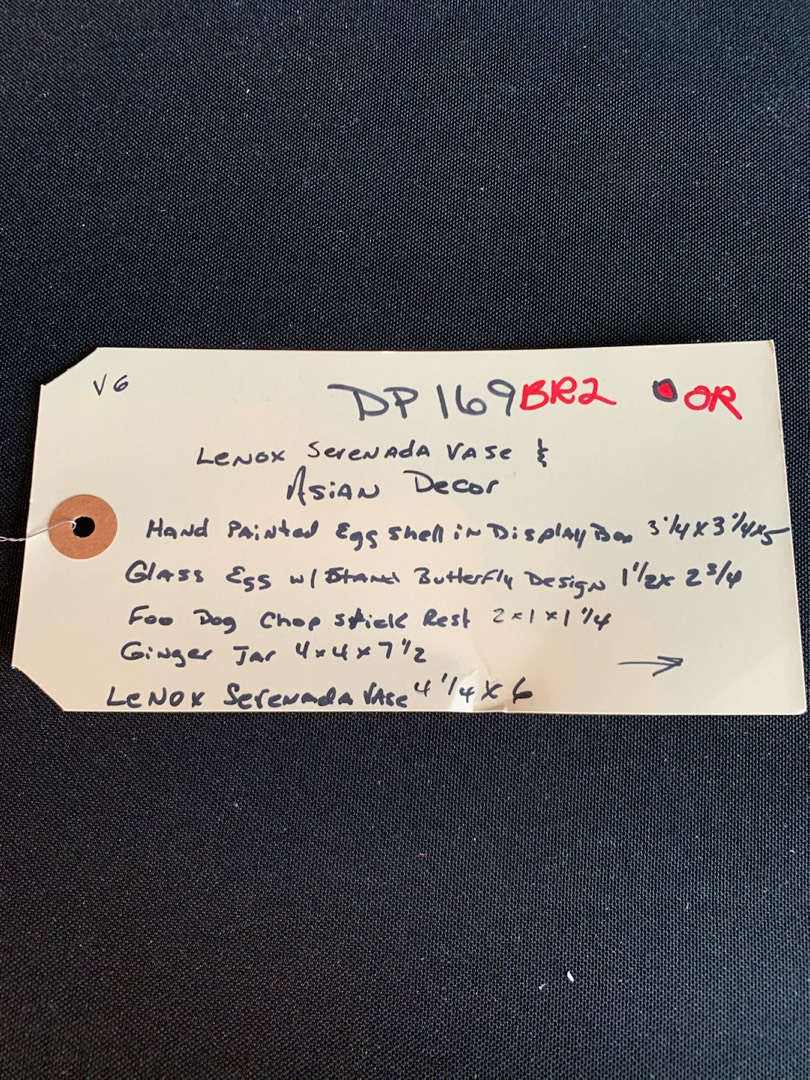 V6
DP 169 BR2 OR
Lenox Serenada Vase &
Asian Decor
Hand Painted Egg shell in Display Box 3 1/4 x 3 1/4 x 5
Glass Egg w/ Stand Butterfly Design 1 1/2 x 2 3/4
Foo Dog Chop stick Rest 2 x 1 x 1 1/4
Ginger Jar 4 x 4 x 7 1/2
Lenox Serenada Vase 4 1/4 x 6